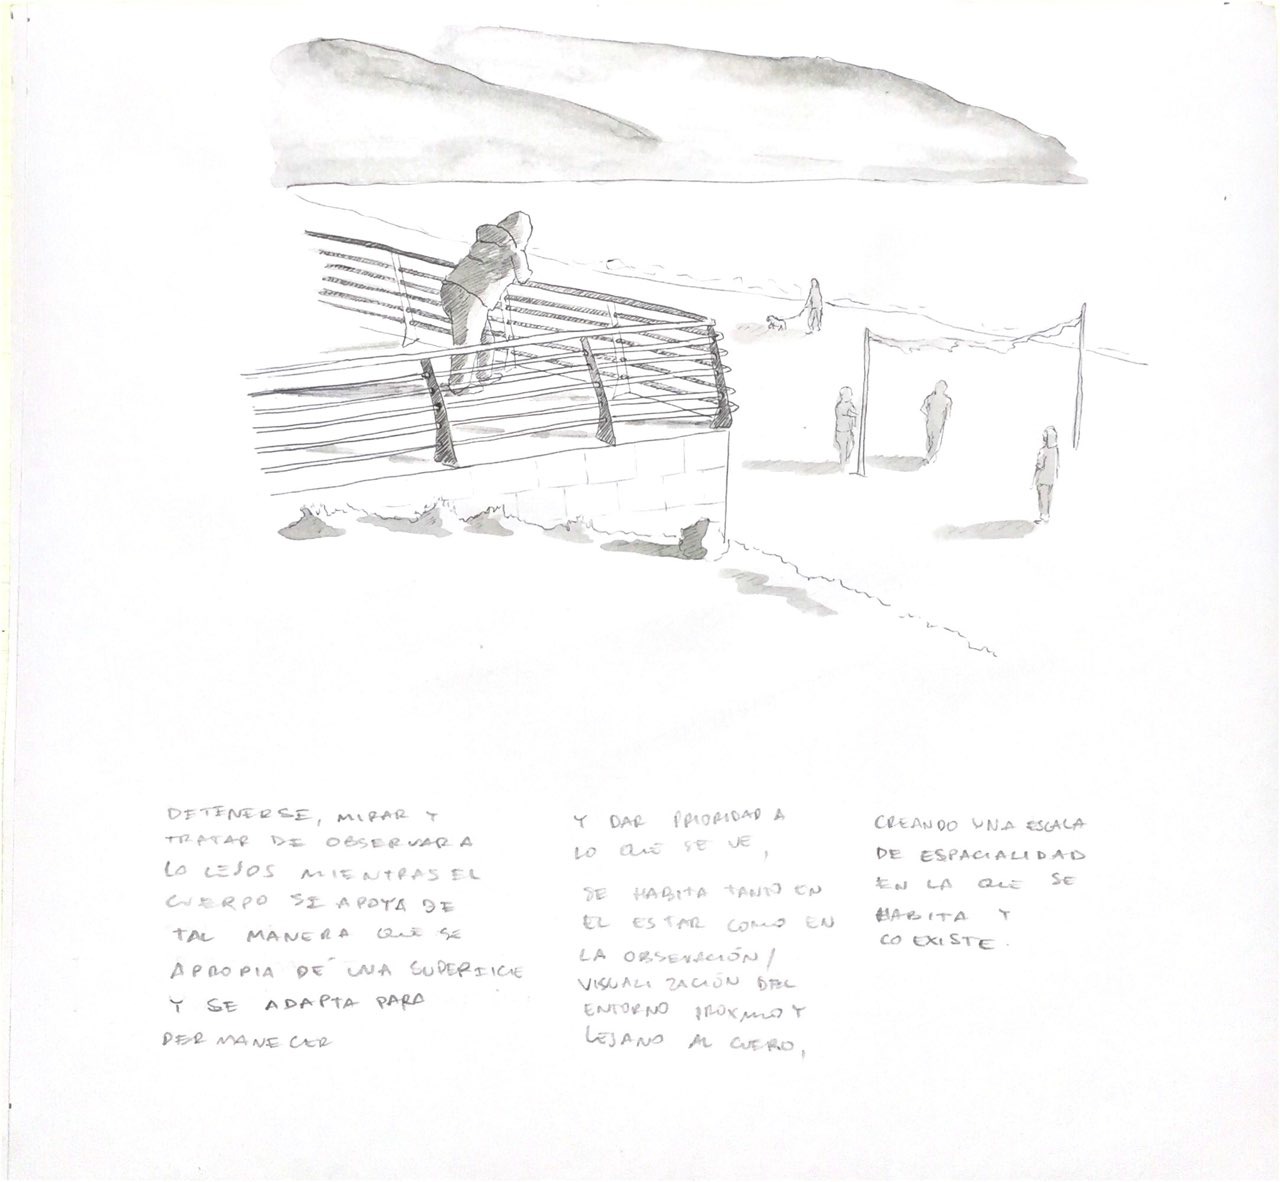 DETENERSE, MIRAR Y
TRATAR DE OBSERVAR A
LO LEJOS MIENTRAS EL
CUERPO SE APOYA DE
TAL MANERA QUE SE
APROPIA DE UNA SUPERFICIE
Y SE ADAPTA PARA
PERMANECER
Y DAR PRIORIDAD A
LO QUE SE VE,
SE HABITA TANTO EN
EL ESTAR COMO EN
LA OBSEVACIÓN/
VISUALIZACIÓN DEL
ENTORNO PROXIMO Y
LEJANO AL CUERO,
CREANDO UNA ESCALA
DE ESPACIALIDAD
EN LA QUE SE
HABITA Y
COEXISTE.